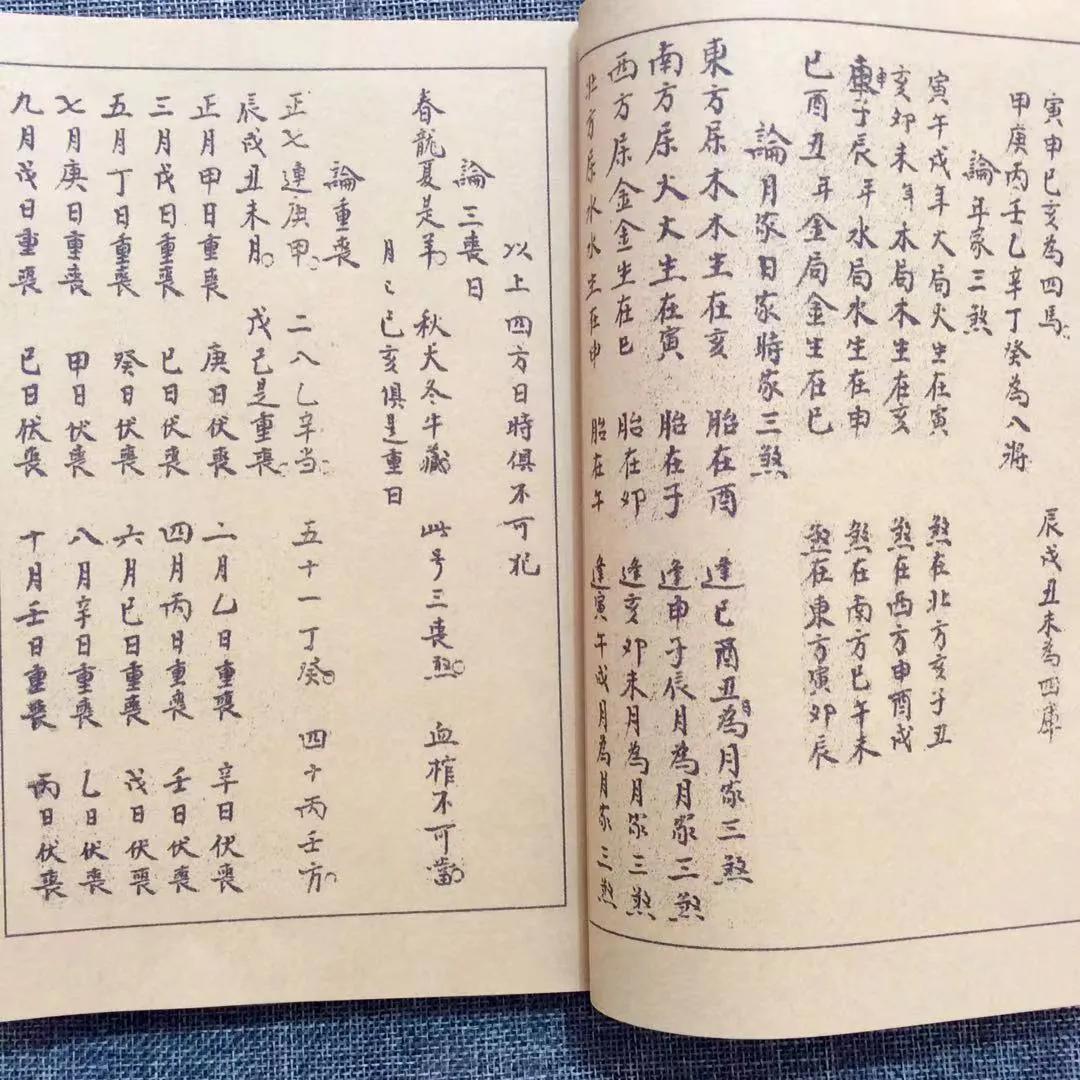 寅申巳亥為四馬 辰戌丑未為四庫
甲庚丙壬乙辛丁癸為八將
論年家三煞
寅午戌年火局火生在寅 煞在北方亥子丑
亥卯未年木局木生在亥 煞在西方申酉戌
申子辰年水局水生在申 煞在南方巳午未
巳酉丑年金局金生在巳 煞在東方寅卯辰
論月家日家時家三煞
東方屬木木生在亥 胎在酉 逢巳酉丑為月家三煞
南方屬火火生在寅 胎在子 逢申子辰月為月家三煞
西方屬金金生在巳 胎在卯 逢亥卯未月為月家三煞
北方屬水水生在申 胎在午 逢寅午戌月為月家三煞
以上四方日時俱不可犯
論三喪日
春龍夏是羊 秋犬冬牛藏 此号三喪煞 血棺不可當
月月巳亥俱是重日
論重喪
正七連庚甲 二八乙辛当 五十一丁癸 四十丙壬方
辰戌丑未月 戊己是重喪
正月甲日重喪 庚日伏喪 二月乙日重喪 辛日伏喪
三月戊日重喪 巳日伏喪 四月丙日重喪 壬日伏喪
五月丁日重喪 癸日伏喪 六月巳日重喪 戊日伏喪
七月庚日重喪 甲日伏喪 八月辛日重喪 乙日伏喪
九月戊日重喪 巳日伏喪 十月壬日重喪 丙日伏喪